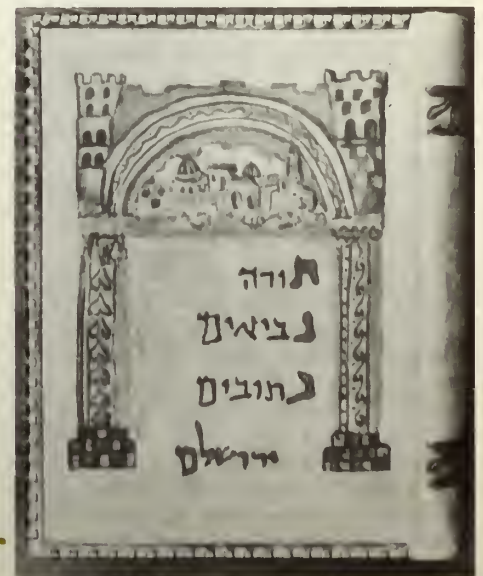 תורה
נביאים
כתובים
ירושלם